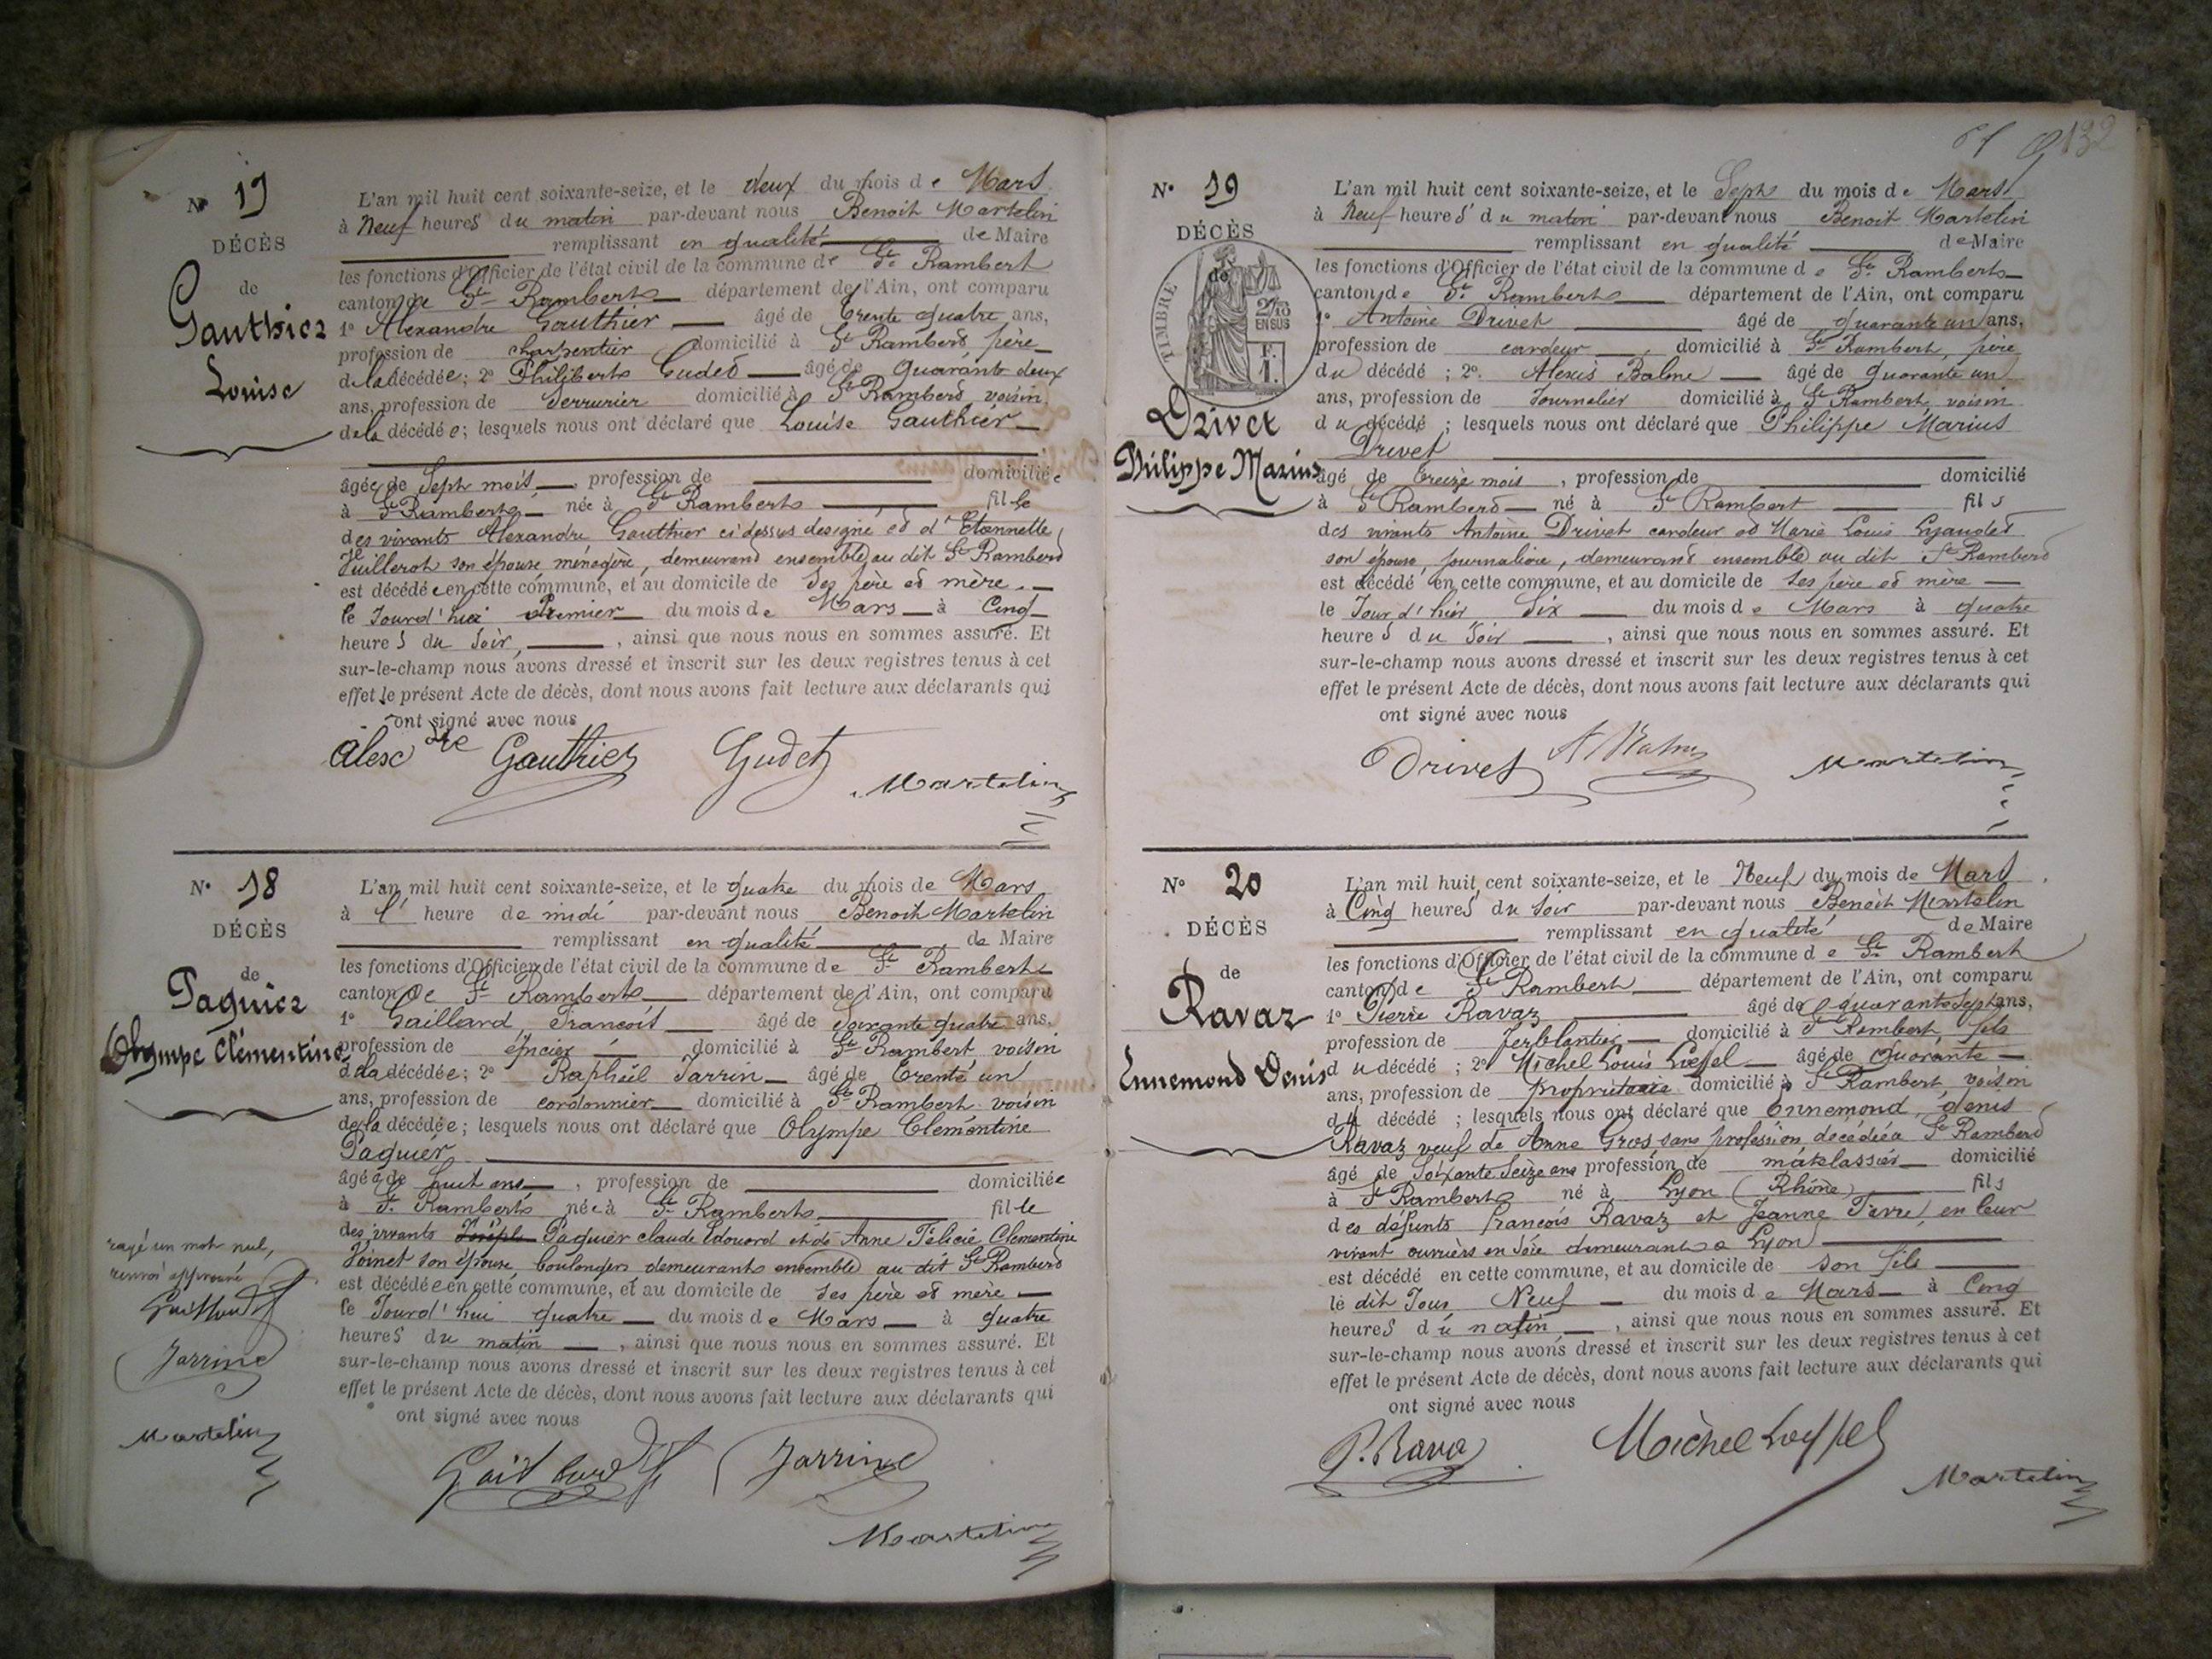 N° 17
DÉCÈS
de
Gauthier
Louise
L'an mil huit cent soixante-seize, et le deux du mois de Mars
à Neuf heures du matin par-devant nous Benoit Martelin
remplissant en qualité de Maire
les fonctions d'Officier de l'état civil de la commune de St Rambert
canton de St Rambert département de l'Ain, ont comparu
1° Alexandre Gauthier âgé de trente quatre ans,
profession de charpentier domicilié à St Rambert père
de la décédée; 2° Philibert Gudet âgé de quarante deux
ans, profession de Serrurier domicilié à St Rambert voisin
de la décédée; lesquels nous ont déclaré que Louise Gauthier
âgée de Sept mois, profession de domiciliée
à St Rambert née à St Rambert fille
des vivants Alexandre Gauthier ci dessus designé et d'Etiennette
Vuillerot son épouse ménagère, demeurant ensemble au dit St Rambert
est décédée en cette commune, et au domicile de ses père et mère
le Jourd'hier Premier du mois de Mars à Cinq
heures du Soir, ainsi que nous nous en sommes assuré. Et
sur-le-champ nous avons dressé et inscrit sur les deux registres tenus à cet
effet le présent Acte de décès, dont nous avons fait lecture aux déclarants qui
ont signé avec nous
Alexdre Gauthier Gudet
Martelin
N° 18
DÉCÈS
de
Paguier
Olympe Clémentine
L'an mil huit cent soixante-seize, et le quatre du mois de Mars
à l' heure de midi par-devant nous Benoit Martelin
remplissant en qualité de Maire
les fonctions d'Officier de l'état civil de la commune de St Rambert
canton de St Rambert département de l'Ain, ont comparu
1° Gaillard, François âgé de Soixante quatre ans,
profession de épicier domicilié à St Rambert voisin
de la décédée; 2° Raphaël Jarrin âgé de trente un
ans, profession de cordonnier domicilié à St Rambert voisin
de la décédée; lesquels nous ont déclaré que Olympe Clémentine
Paguier
âgée de huit ans, profession de domiciliée
à St Rambert née à St Rambert fille
des vivants Joseph Paguier claude Edouard et de Anne Félicie Clementine
Voinet son épouse boulangers demeurants ensemble au dit St Rambert
est décédée en cette commune, et au domicile de ses père et mère
le Jourd'hui quatre du mois de Mars à quatre
heures du matin, ainsi que nous nous en sommes assuré. Et
sur-le-champ nous avons dressé et inscrit sur les deux registres tenus à cet
effet le présent Acte de décès, dont nous avons fait lecture aux déclarants qui
ont signé avec nous
rayé un mot nul,
renvoi approuvé
Gaillard
Jarrine
Martelin
Gaillard Jarrine
Martelin
61 132
N° 19
DÉCÈS
de
TIMBRE
2/10
EN SUS
F.
1.
Drivet
Philippe Marius
L'an mil huit cent soixante-seize, et le Sept du mois de Mars
à Neuf heures du matin par-devant nous Benoit Martelin
remplissant en qualité de Maire
les fonctions d'Officier de l'état civil de la commune de St Rambert
canton de St Rambert département de l'Ain, ont comparu
1° Antoine Drivet âgé de quarante un ans,
profession de cardeur, domicilié à St Rambert, père
du décédé; 2°. Alexis Balme âgé de quarante un
ans, profession de Journalier domicilié à St Rambert voisin
du décédé; lesquels nous ont déclaré que Philippe Marius
Drivet
âgé de treize mois, profession de domicilié
à St Rambert né à St Rambert fils
des vivants Antoine Drivet cardeur et Marie Louis
son épouse, journalière, demeurant ensemble au dit St Rambert
est décédé en cette commune, et au domicile de ses père et mère
le Jour d'hier Six du mois de Mars à quatre
heures du Soir, ainsi que nous nous en sommes assuré. Et
sur-le-champ nous avons dressé et inscrit sur les deux registres tenus à cet
effet le présent Acte de décès, dont nous avons fait lecture aux déclarants qui
ont signé avec nous
Drivet Martelin
N° 20
DÉCÈS
de
Ravaz
Ennemond Denis
L'an mil huit cent soixante-seize, et le Neuf du mois de Mars
à Cinq heures du Soir par-devant nous Benoit Martelin
remplissant en qualité de Maire
les fonctions d'Officier de l'état civil de la commune de St Rambert
canton de St Rambert département de l'Ain, ont comparu
1° Pierre Ravaz âgé de quarante Sept ans,
profession de ferblantier domicilié à St Rambert fils
du décédé; 2° Michel Louis Loeffel âgé de Quarante
ans, profession de propriétaire domicilié à St Rambert, voisin
du décédé; lesquels nous ont déclaré que Ennemond, denis
Ravaz veuf de Anne Gros sans profession décédée à St Rambert
âgé de Soixante Seize ans profession de matelassier domicilié
à St Rambert né à Lyon (Rhône) fils
des défunts françois Ravaz et Jeanne Favre, en leur
vivant ouvriers en soie demeurants à Lyon
est décédé en cette commune, et au domicile de son fils
le dit Jour Neuf du mois de Mars à Cinq
heures du matin, ainsi que nous nous en sommes assuré. Et
sur-le-champ nous avons dressé et inscrit sur les deux registres tenus à cet
effet le présent Acte de décès, dont nous avons fait lecture aux déclarants qui
ont signé avec nous
P. Rava Michel Loeffel
Martelin